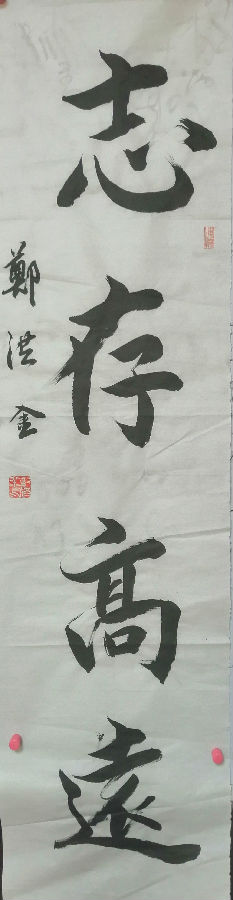 志存高遠
鄭洪金